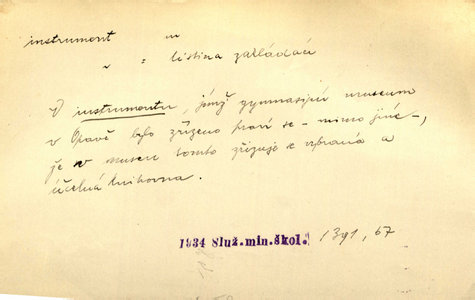 instrument m
„ = listina zakládací
V instrumentu, jímž gymnasijní museum
v Opavě bylo zřízeno praví se – mimo jiné –,
že v museu tomto zřizuje se vybraná a
účelná knihovna.
1934 Služ.min.škol. 1391, 67